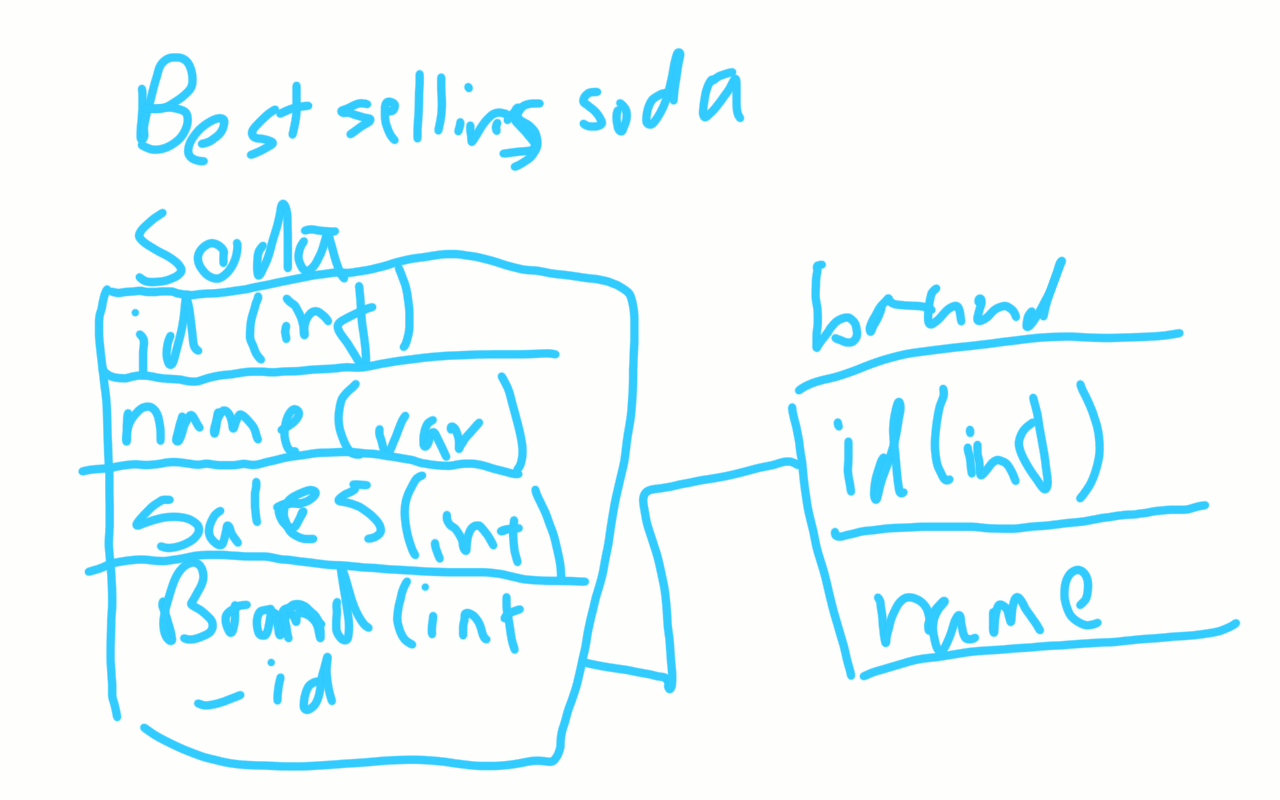 Best selling soda
Soda
id (int)
name (var)
sales (int)
Brand (int
_id
brand
id (int)
name